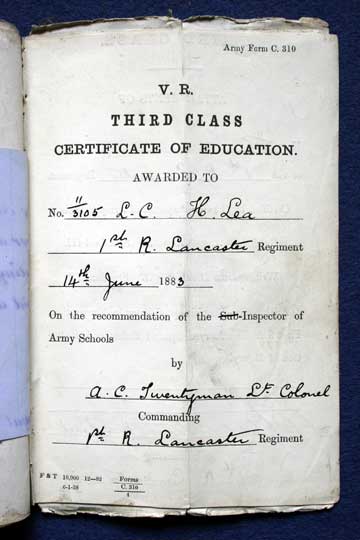 Army Form C. 310
V. R.
THIRD CLASS
CERTIFICATE OF EDUCATION.
AWARDED TO
No. 11/3105 L-C. H. Lea
1st R. Lancaster Regiment
14th June 1883
On the recommendation of the Sub-Inspector of
Army Schools
by
A. C. Twentyman Lt. Colonel
Commanding
1st R. Lancaster Regiment
F & T 10,000 12—82 Forms
C. 310
4